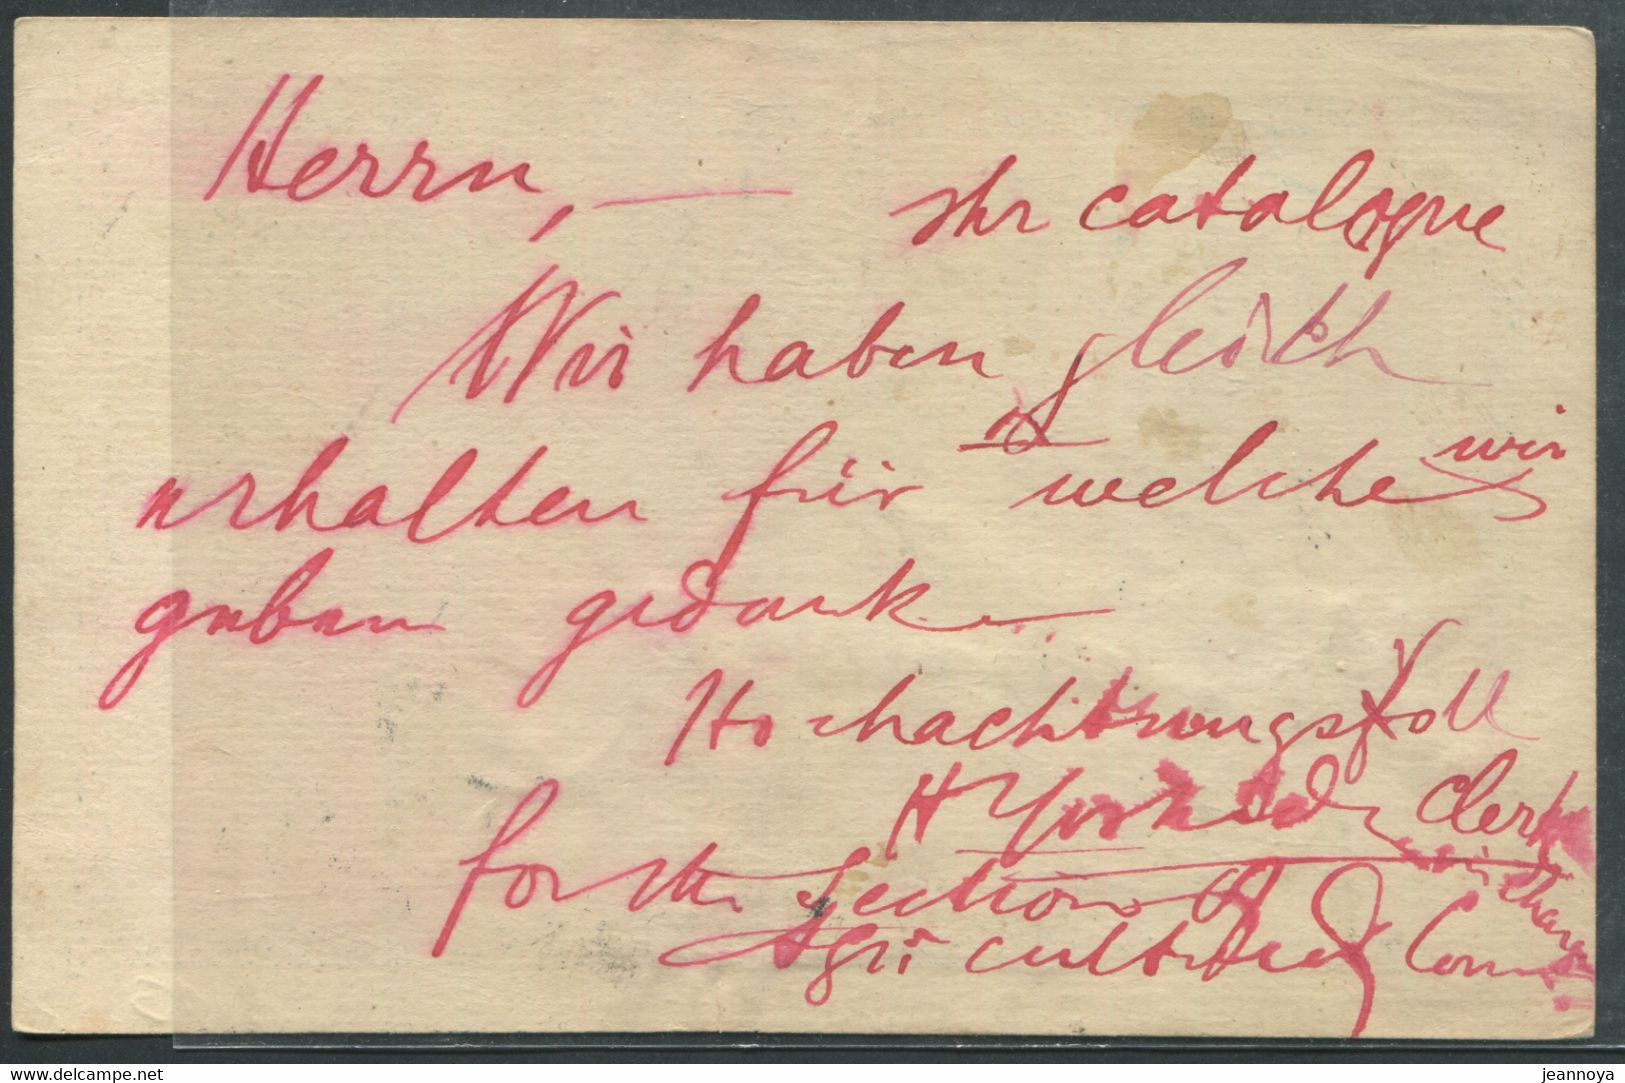 Herrn, —
Ihr catalogue
Wir haben gleich
erhalten für welche wir
geben gedank
Hochachtungsvoll
H Clerk
in charge
for the Section of
Agricultural Com
www.delcampe.net
jeannoya